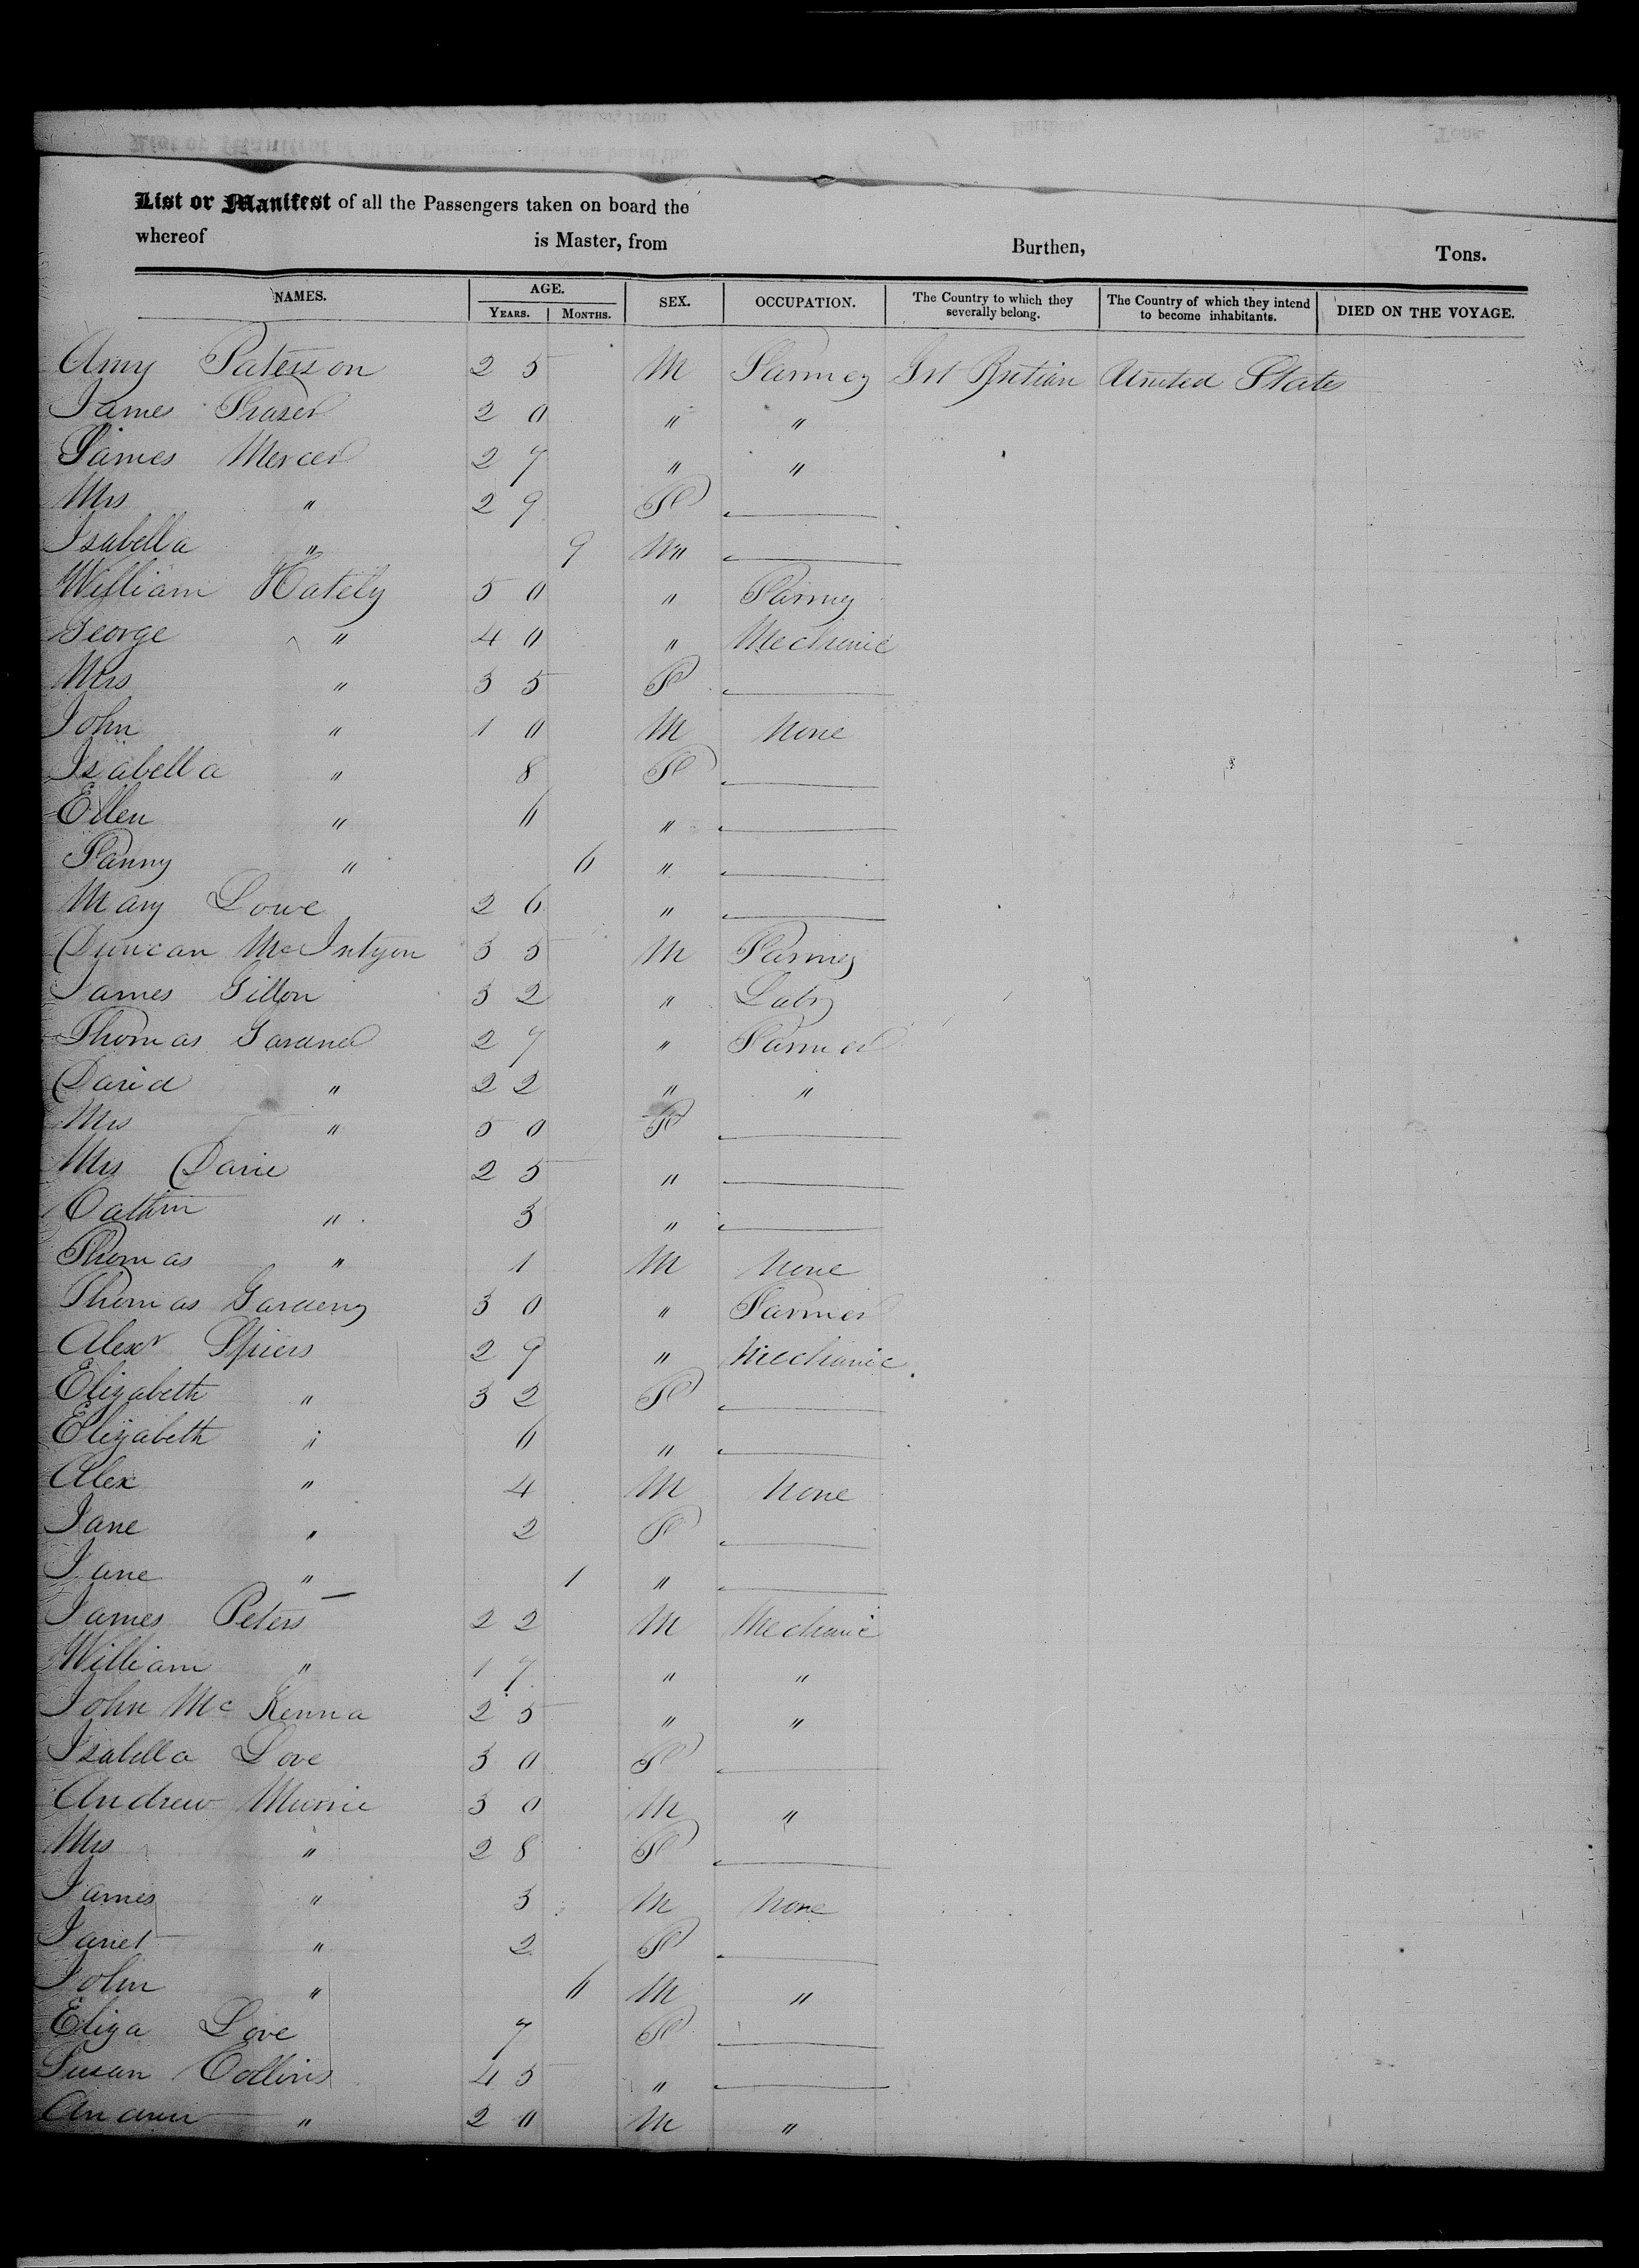 List or Manifest of all the Passengers taken on board the
whereof is Master, from Burthen, Tons.
NAMES. AGE. YEARS. MONTHS. SEX. OCCUPATION. The Country to which they severally belong. The Country of which they intend to become inhabitants. DIED ON THE VOYAGE.
Amy Paterson 25 M Farmer Grt Bretian United States
James Fraser 20 " "
James Mercer 27 " "
Mrs " 29 F —
Isabella " 9 M" —
William Hately 50 " Farmer
George " 40 " Mechanic
Mrs " 35 F —
John " 10 M None
Isabella " 8 F —
Ellen " 6 " —
Fanny " 6 " —
Mary Lowe 26 " —
Duncan McIntyre 35 M Farmer
James Gillon 32 " Labr
Thomas Gardner 27 " Farmer
David " 22 " "
Mrs " 50 F —
Mrs Davie 25 " —
Cathrin " 3 " —
Thomas " 1 M None
Thomas Gardener 30 " Farmer
Alexr Spiers 29 " Mechanic
Elizabeth " 32 F —
Elizabeth " 6 " —
Alex " 4 M None
Jane " 2 F —
Jane " 1 " —
James Peters 22 M Mechanic
William " 17 " "
John McKenna 25 " "
Isabella Love 30 F —
Andrew Murrie 30 M "
Mrs " 28 F —
James " 3 M None
Janet " 2 F —
John " 6 M "
Eliza Love 7 F —
Susan Collins 45 " —
Andrew " 20 M "